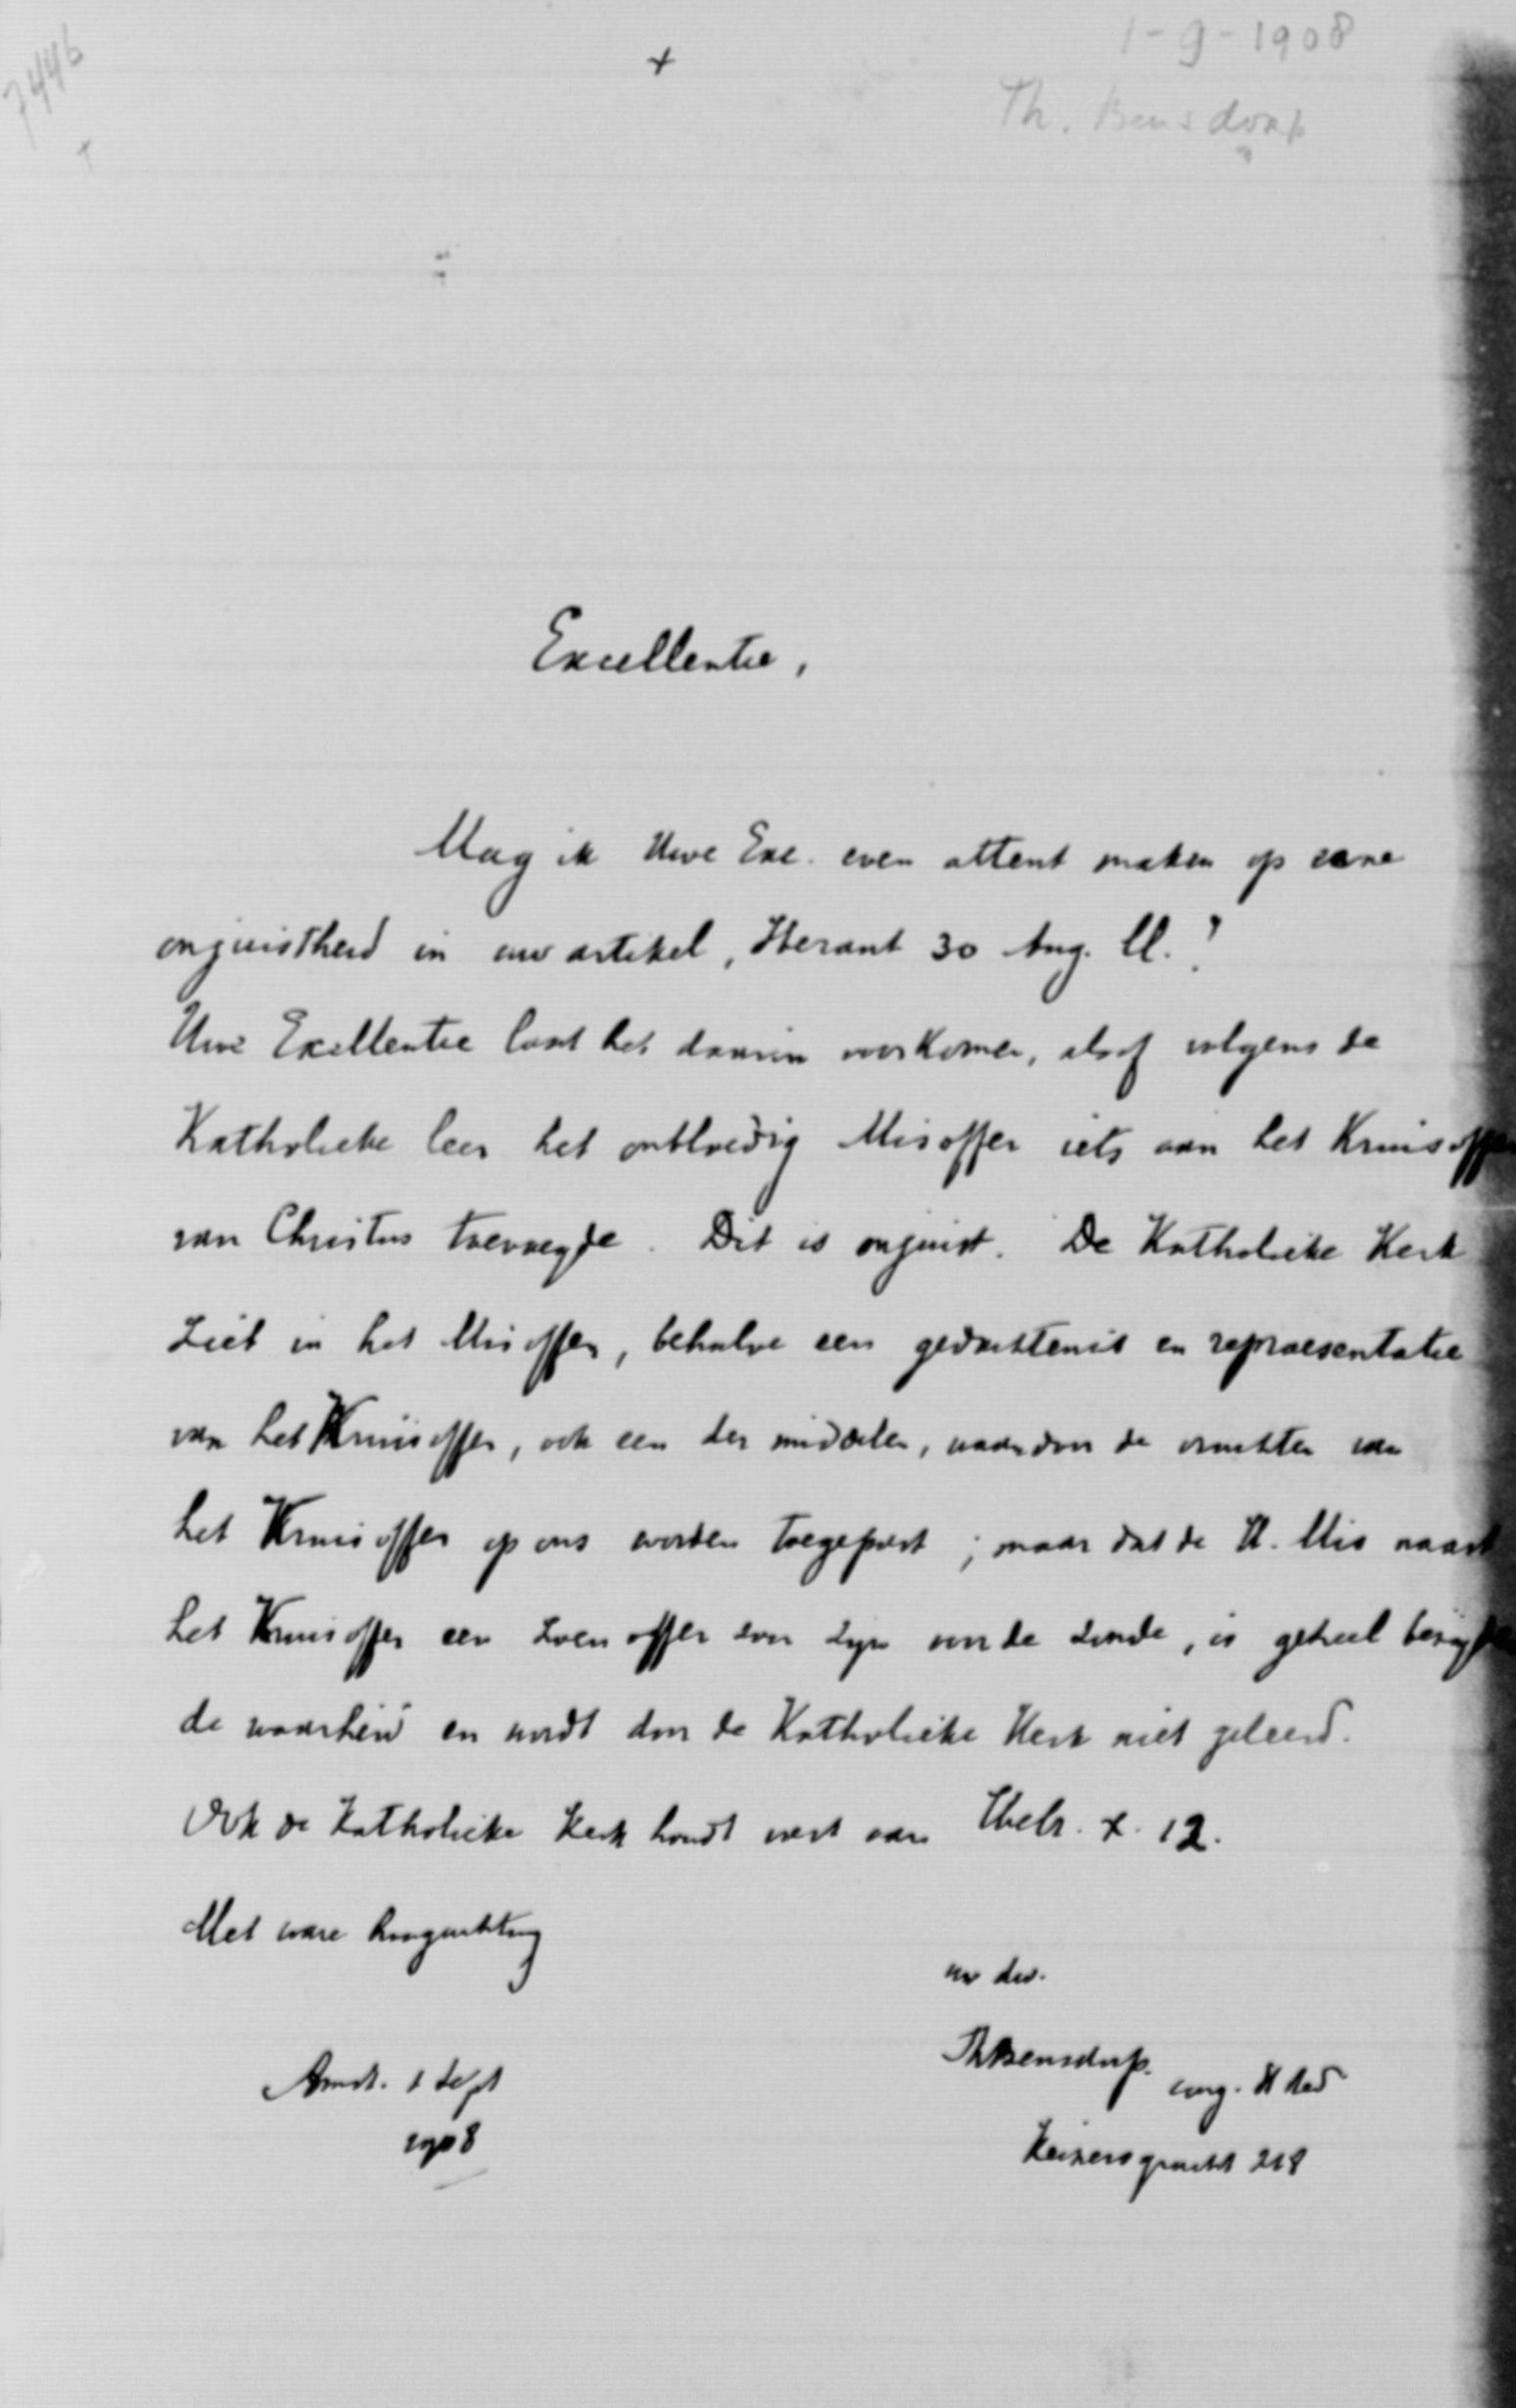 7446
+
1-9-1908
Th. Bensdorp
Excellentie,
Mag ik Uwe Exc. even attent maken op eene
onjuistheid in uw artikel, Heraut 30 Aug. ll.?
Uwe Excellentie laat het daarin voorkomen, alsof volgens de
Katholieke leer het onbloedig Misoffer iets aan het Kruisoffer
van Christus toevoegde. Dit is onjuist. De Katholieke Kerk
ziet in het Misoffer, behalve een gedachtenis en repraesentatie
van het Kruisoffer, ook een der middelen, waardoor de vruchten van
het Kruisoffer op ons worden toegepast; maar dat de H. Mis naast
het Kruisoffer een zoenoffer zou zijn voor de zonde, is geheel bezijden
de waarheid en wordt door de Katholieke Kerk niet geleerd.
Ook de Katholieke Kerk houdt vast aan Hebr. X. 12.
Met ware hoogachting
uw dw.
Th Bensdorp.
cong. SS Red
Amst. 1 Sept
1908
Keizersgracht 218